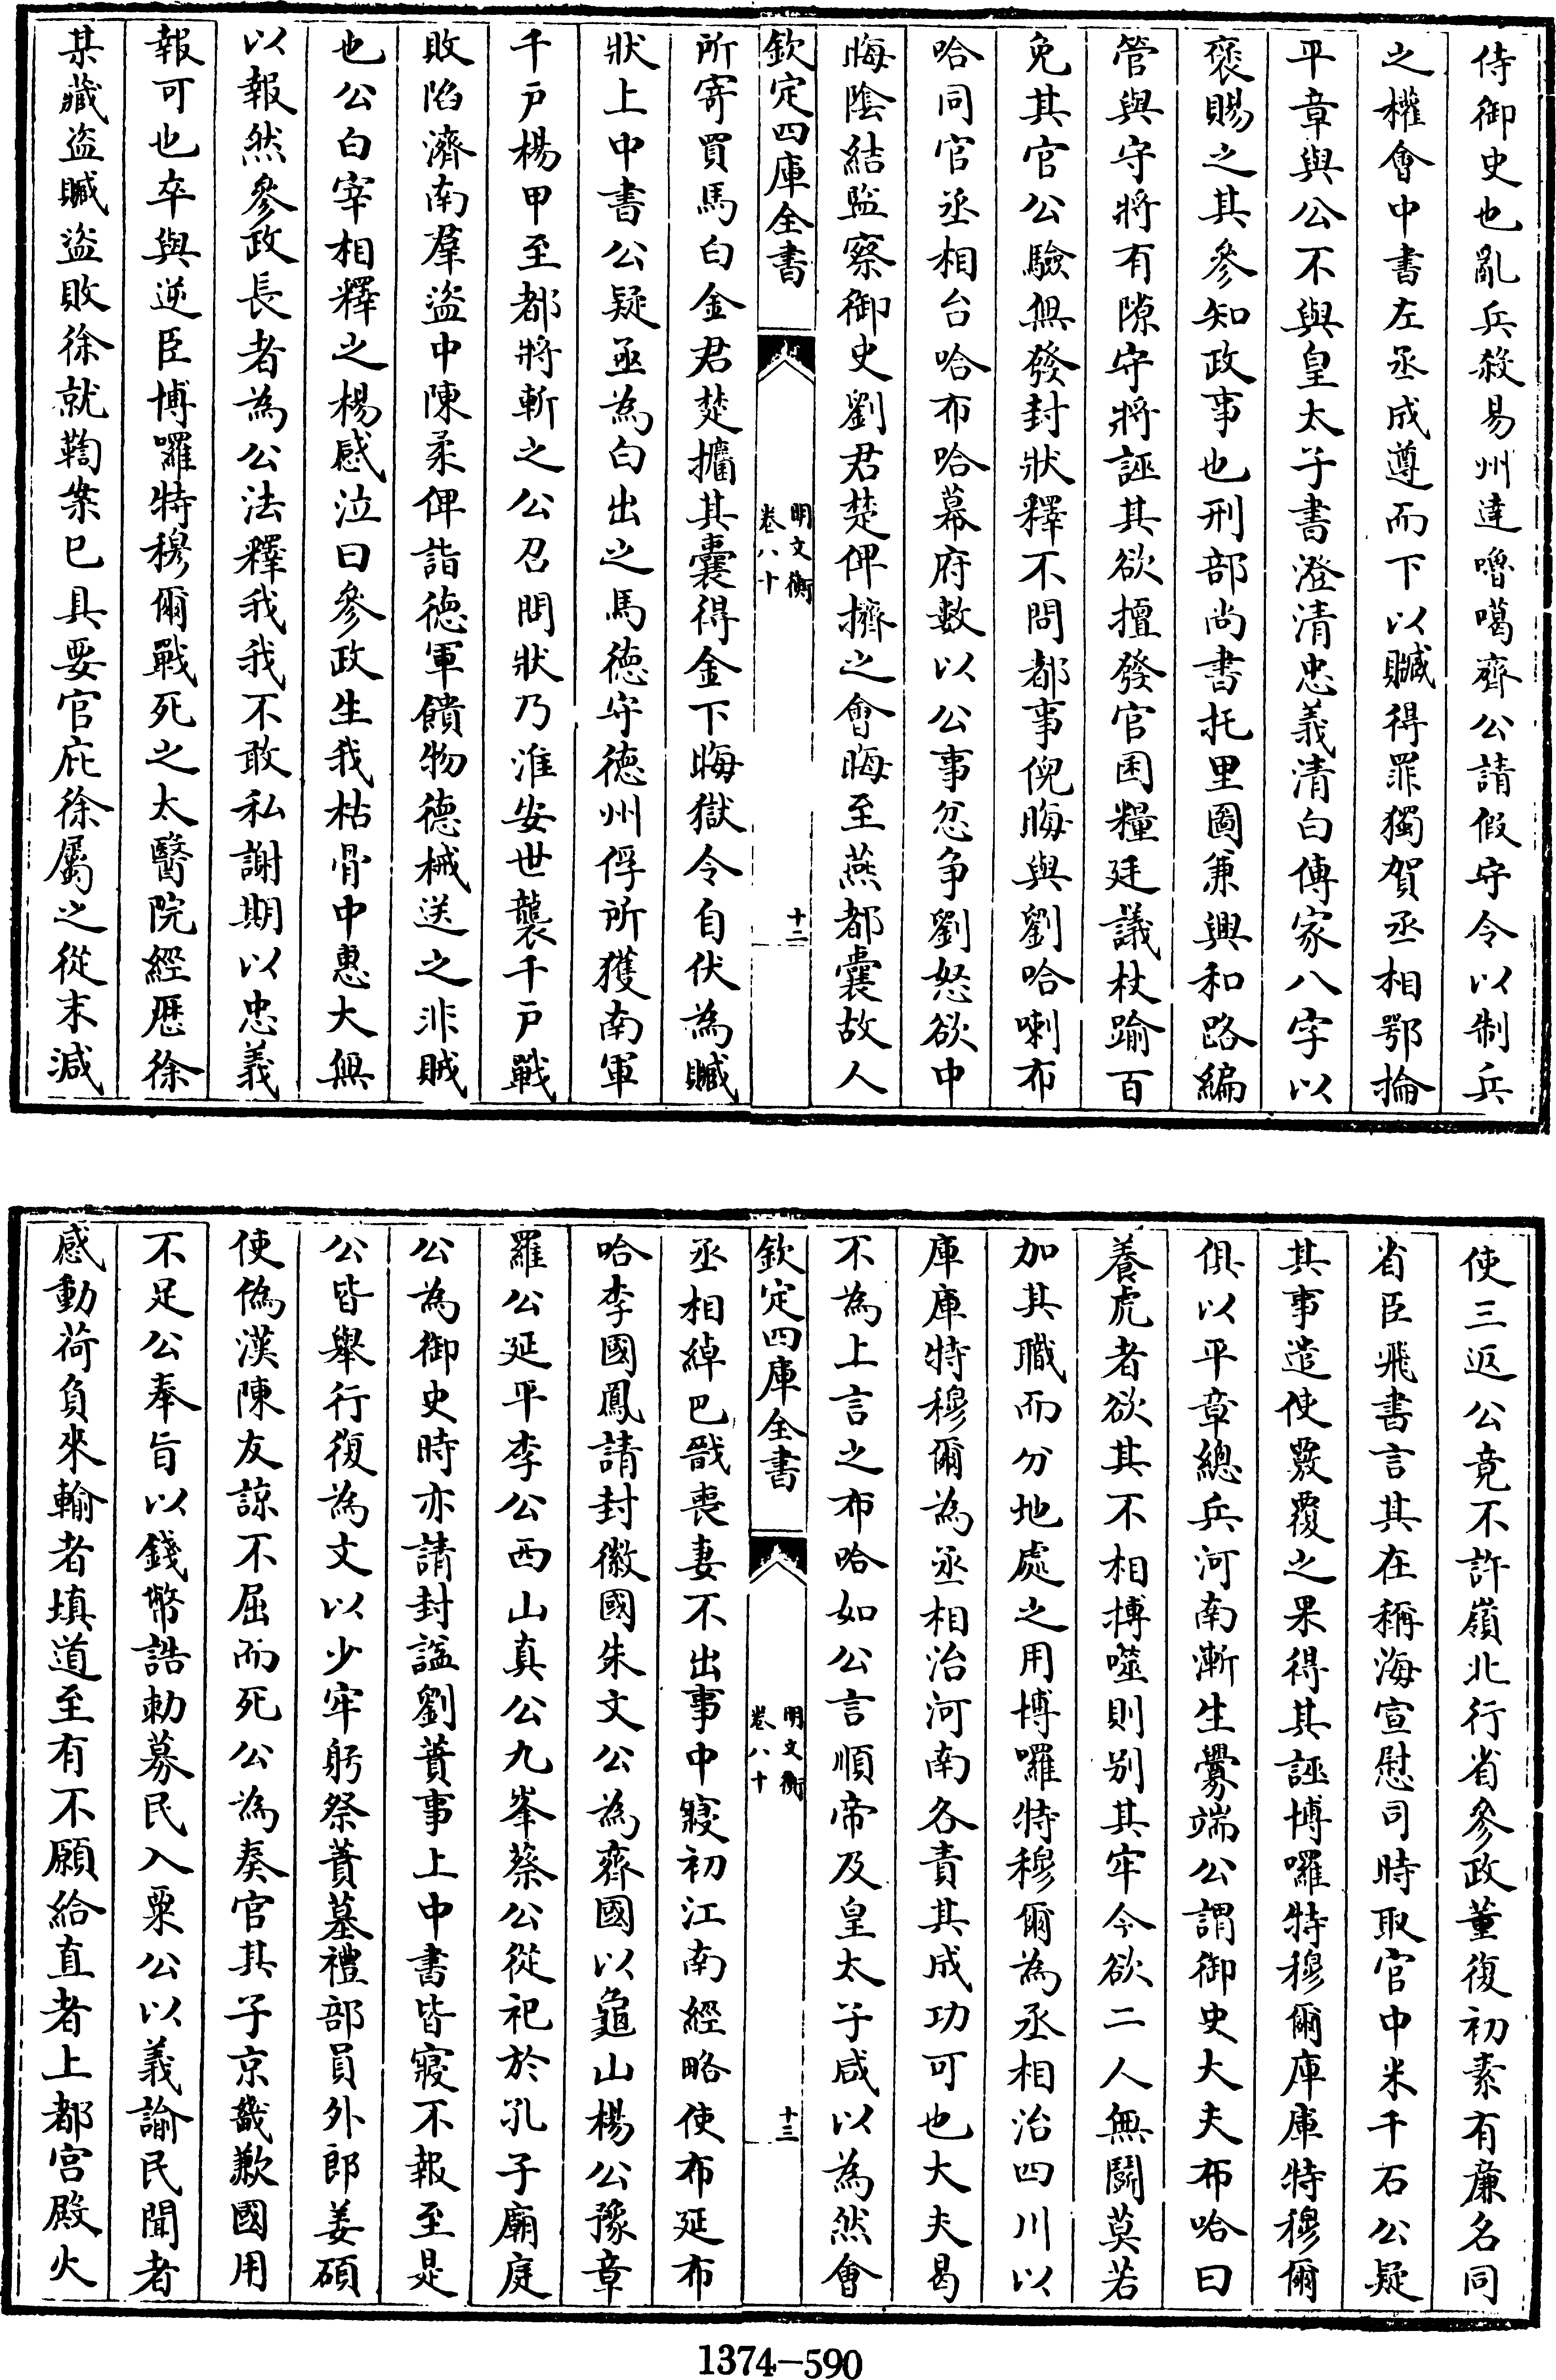 侍御史也亂兵殺易州達嚕噶齊公請假守令以制兵
之權會中書左丞成遵而下以贓得罪獨賀丞相鄂掄
平章與公不與皇太子書澄清忠義清白傳家八字以
褒賜之其參知政事也刑部尚書托里圖兼興和路編
管與守將有隙守將誣其欲擅發官囷糧廷議杖踰百
免其官公驗無發封狀釋不問都事倪晦與劉哈喇布
哈同官丞相台哈布哈幕府數以公事忿争劉怒欲中
晦陰結監察御史劉君楚俾擠之會晦至燕都囊故人
欽定四庫全書
明文衡
卷八十
十二
所寄買馬白金君楚攟其囊得金下晦獄令自伏為贓
狀上中書公疑亟為白出之馬德守德州俘所獲南軍
千戶楊甲至都將斬之公召問狀乃淮安世襲千戶戰
敗陷濟南羣盗中陳柔俾詣德軍饋物德械送之非賊
也公白宰相釋之楊感泣曰參政生我枯骨中惠大無
以報然參政長者為公法釋我我不敢私謝期以忠義
報可也卒與逆臣博囉特穆爾戰死之太醫院經歷徐
某藏盜贓盜敗徐就鞫案已具要官庇徐屬之從末減
使三返公竟不許嶺北行省參政董復初素有廉名同
省臣飛書言其在稱海宣慰司時取官中米千石公疑
其事遣使覈覆之果得其誣博囉特穆爾庫庫特穆爾
俱以平章總兵河南漸生釁端公謂御史大夫布哈曰
養虎者欲其不相搏噬則别其牢今欲二人無鬭莫若
加其職而分地處之用博囉特穆爾為丞相治四川以
庫庫特穆爾為丞相治河南各責其成功可也大夫曷
不為上言之布哈如公言順帝及皇太子咸以為然會
欽定四庫全書
明文衡
卷八十
十三
丞相綽巴戩喪妻不出事中寢初江南經略使布延布
哈李國鳳請封徽國朱文公為齊國以龜山楊公豫章
羅公延平李公西山真公九峯蔡公從祀於孔子廟庭
公為御史時亦請封諡劉蕡事上中書皆寢不報至是
公皆舉行復為文以少牢躬祭蕡墓禮部員外郎姜碩
使僞漢陳友諒不屈而死公為奏官其子京畿歉國用
不足公奉旨以錢幣誥勅募民入粟公以義諭民聞者
感動荷負來輸者填道至有不願給直者上都宫殿火
1374—590